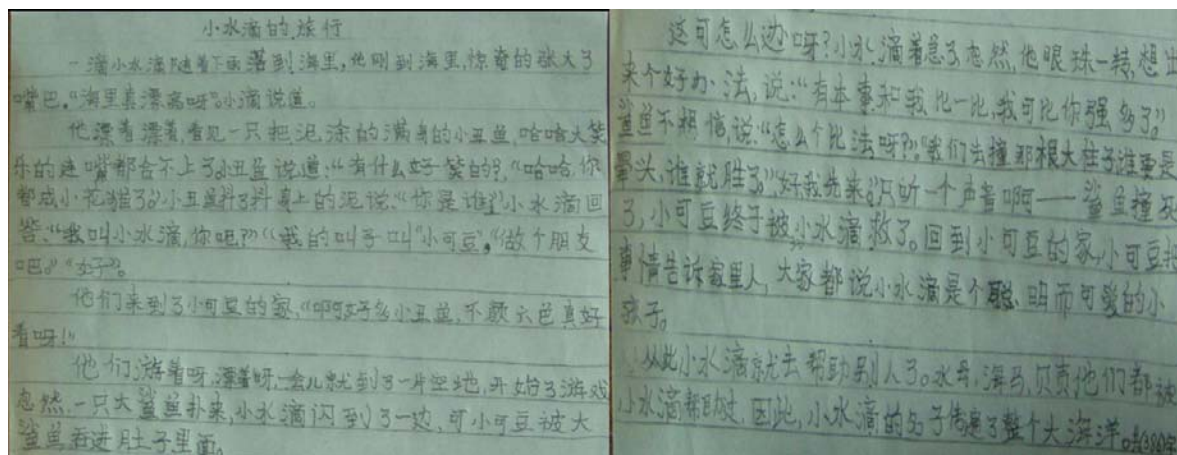 小水滴的旅行
一滴小水滴随着下雨落到海里,他刚到海里,惊奇的张大了
嘴巴。“海里真漂亮呀”。小滴说道。
他漂着漂着,看见一只把泥涂的满身的小丑鱼,哈哈大笑
乐的连嘴都合不上了。小丑鱼说道:“有什么好笑的?”,“哈哈,你
都成小花猫了”。小丑鱼抖了抖身上的泥说:“你是谁?”小水滴回
答:“我叫小水滴,你呢?”“我的叫子叫“小可豆”。“做个朋友
吧。”“好”。
他们来到了小可豆的家,“啊好多小丑鱼,不颜六色真好
看呀!”
他们游着呀,漂着呀,一会儿就到了一片空地,开始了游戏
忽然,一只大鲨鱼扑来,小水滴闪到了一边,可小可豆被大
鲨鱼吞进肚子里面。
这可怎么边呀?小水滴着急了忽然,他眼珠一转,想出
来个好办法,说:“有本事和我比一比,我可比你强多了”。
鲨鱼不相信,说:“怎么个比法呀?”。“我们去撞那根大柱子谁要是
晕头,谁就胜了。”“好我先来。”只听一个声音啊——鲨鱼撞死
了,小可豆终于被小水滴救了。回到小可豆的家,小可豆把
事情告诉家里人,大家都说小水滴是个聪明而可爱的小
孩子。
从此小水滴就去帮助别人了。水母,海马,贝壳他们都被
小水滴帮助过,因此,小水滴的名子传遍了整个大海洋。